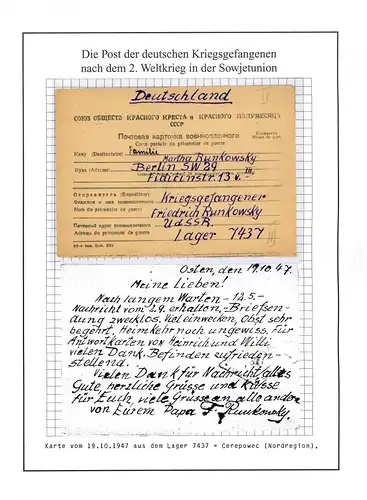 Die Post der deutschen Kriegsgefangenen
nach dem 2. Weltkrieg in der Sowjetunion
Deutschland
СОЮЗ ОБЩЕСТВ КРАСНОГО КРЕСТА и КРАСНОГО ПОЛУМЕСЯЦА
СССР
Почтовая карточка военнопленного
Carte postale du prisonnier de guerre
Familie
Кому (Destinataire) Martha Runkowsky
Куда (Adresse) Berlin SW 29
Fidicinstr. 13 v. III
Отправитель (Expéditeur)
Фамилия и имя военнопленного Kriegsgefangener
Nom du prisonnier de guerre Friedrich Runkowsky
Почтовый адрес военнопленного UdSSR.
Adresse du prisonnier de guerre Lager 7437
Osten, den 19.10.47.
Meine Lieben!
Nach langem Warten - 12.5. -
Nachricht vom 2.9. erhalten, - Briefsen-
dung zwecklos. Viel einwecken, Obst sehr
begehrt, Heimkehr noch ungewiss. Für
Antwortkarten von Heinrich und Willi
vielen Dank. Befinden zufrieden-
stellend.
Vielen Dank für Nachricht, alles
Gute, herzliche Grüsse und Küsse
für Euch, viele Grüsse an alle andere
von Eurem Papa F. Runkowsky.
Karte vom 19.10.1947 aus dem Lager 7437 = Cerepowec (Nordregion),